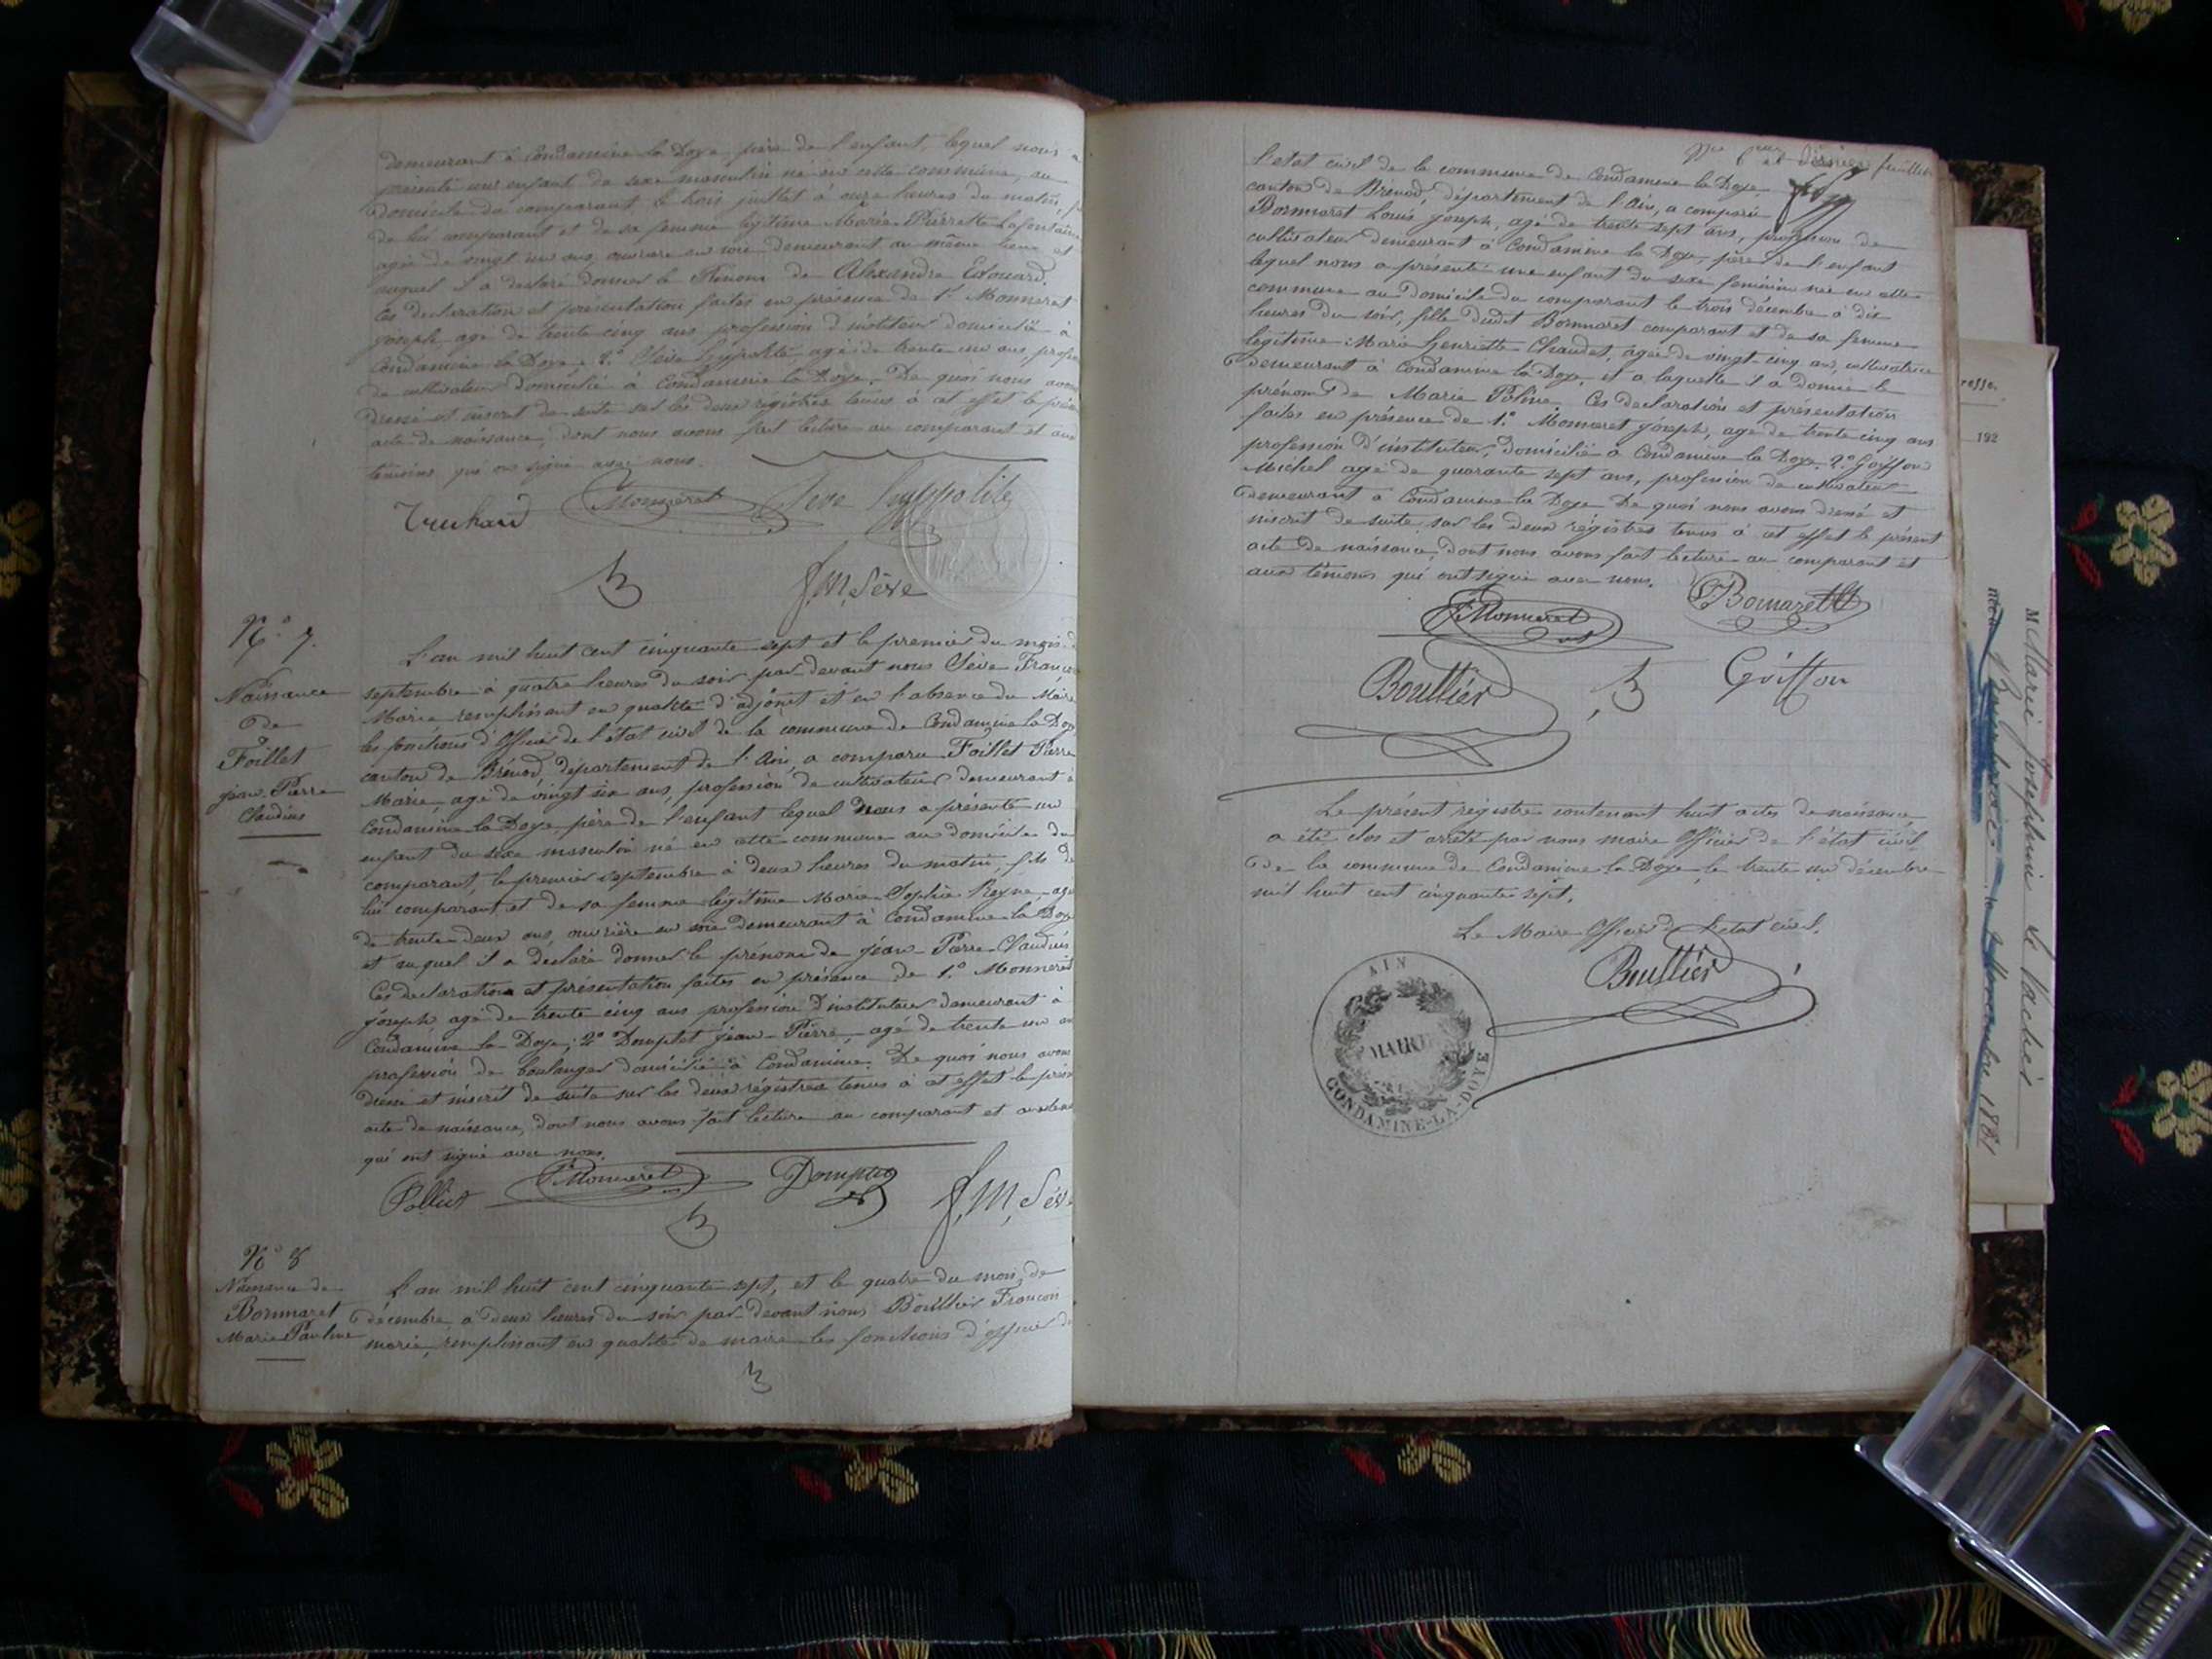 demeurant à Condamine la Doye, père de l'enfant, lequel nous a
présenté un enfant de sexe masculin né en cette commune, au
domicile du comparant le trois juillet à onze heures du matin,
de lui comparant et de sa femme légitime Marie Pierrette Lafontaine
agée de vingt un ans, ouvrière en soie demeurant au même lieu et
auquel il a declaré donner le Prénom de Alexandre Edouard.
Ces declaration et présentation faites en présence de 1º Monneret
joseph, agé de trente cinq ans profession d'instituteur domicilié à
Condamine la Doye; 2º Sève hyppolite agé de trente un ans, profes
de cultivateur domicilié à Condamine la Doye. De quoi nous avons
dressé et inscrit de suite sur les deux registres tenus à cet effet le prés
acte de naissance, dont nous avons fait lecture au comparant et aux
témoins qui ont signé avec nous.
Truchard Monneret Seve hyppolite
F. M. Sève
Nº 7.
Naissance
de
Foillet
jean-Pierre
Claudius
L'an mil huit cent cinquante sept et le premier du mois d
septembre à quatre heures du soir par devant nous Sève François
Marie remplissant en qualité d'adjoint et en l'absence du Maire
les fonctions d'officier de l'état civil de la commune de Condamine la Doye
canton de Brénod, département de l'Ain, a comparu Foillet Pierre
Marie, agé de vingt six ans, profession de cultivateur demeurant à
Condamine la Doye père de l'enfant lequel nous a présenté un
enfant du sexe masculin né en cette commune au domicile du
comparant, le premier septembre à deux heures du matin, fils de
lui comparant et de sa femme légitime Marie Sophie Reyne agée
de trente deux ans, ouvrière en soie demeurant à Condamine la Doye
et auquel il a declaré donner le prénom de jean-Pierre-Claudius
Ces declaration et présentation faites en présence de 1.º Monneret
joseph agé de trente cinq ans profession d'instituteur demeurant à
Condamine la Doye; 2º Domptet jean-Pierre, agé de trente un an
profession de boulanger domicilié à Condamine. De quoi nous avons
dressé et inscrit de suite sur les deux régistres tenus à cet effet le prés
acte de naissance, dont nous avons fait lecture au comparant et aux tém
qui ont signé avec nous.
Folliet Monneret Domptet F. M. Sève
Nº 8
Naissance de
Bornmaret
Marie Pauline
L'an mil huit cent cinquante sept, et le quatre du mois de
décembre à deux heures du soir par devant nous Boullier Françon
marie, remplissant en qualité de maire les fonctions d'officier de
6 et dernier feuillet
l'etat civil de la commune de Condamine la Doye,
canton de Brénod, département de l'Ain, a comparu
Bornmaret Louis joseph, agé de trente sept ans, profession de
cultivateur demeurant à Condamine la Doye, père de l'enfant
lequel nous a présenté une enfant du sexe féminin née en cette
commune au domicile du comparant le trois décembre à dix
heures du soir, fille dudit Bornmaret comparant et de sa femme
légitime Marie henriette Chaudet, agée de vingt-cinq ans, cultivatrice
demeurant à Condamine la Doye, et a laquelle il a donné le
prénom de Marie Poline. Ces declaration et présentation
faites en présence de 1.º Monneret joseph, agé de trente cinq ans
profession d'instituteur, domicilié à Condamine la Doye. 2.º Goiffon
Michel agé de quarante sept ans, profession de cultivateur
demeurant à Condamine la Doye De quoi nous avons dressé et
inscrit de suite sur les deux régistres tenus à cet effet le présent
acte de naissance, dont nous avons fait lecture au comparant et
aux témoins qui ont signé avec nous.
Monneret Bornaret
Boullier Goiffon
Le présent régistre contenant huit actes de naissance
a été clos et arrêté par nous maire Officier de l'état civil
de la commune de Condamine la Doye le trente un décembre
mil huit cent cinquante sept.
Le Maire Officier de l'etat civil.
Boullier
AIN
MAIRIE
CONDAMINE-LA-DOYE
192
M Marie Joséphine le Vachier
novembre 1881